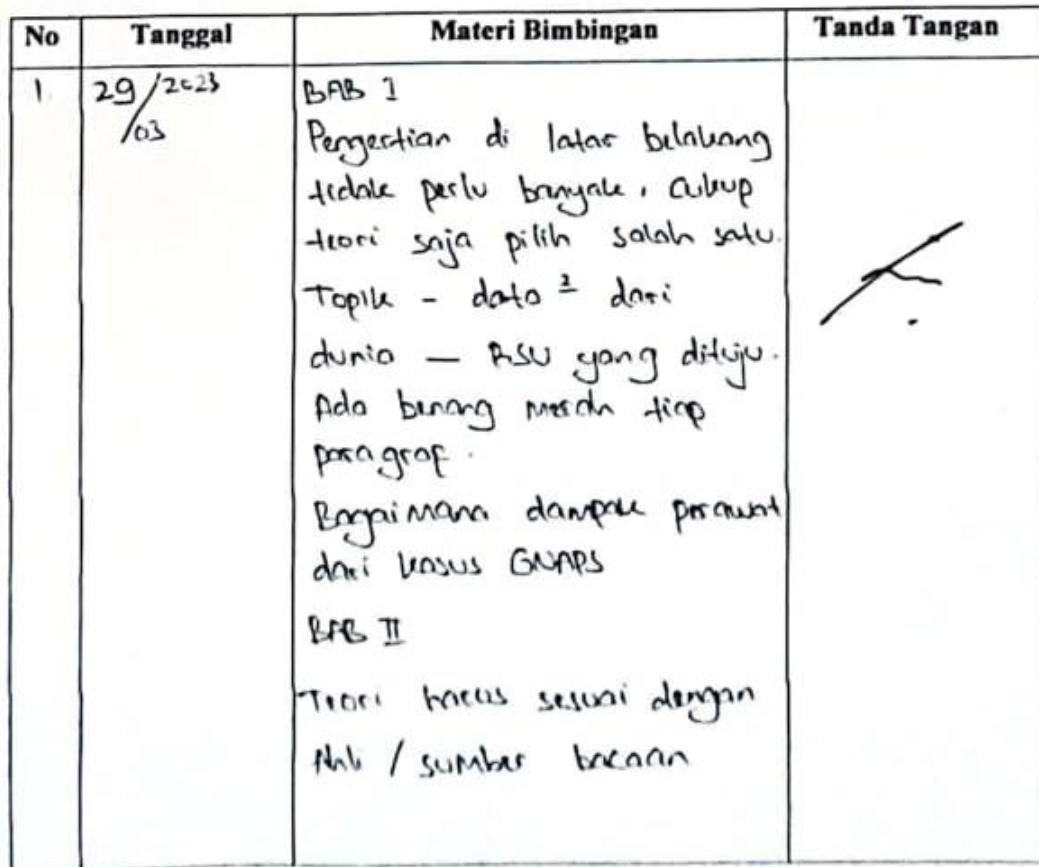 No Tanggal Materi Bimbingan Tanda Tangan
1. 29/2023 BAB I
/03
Pengertian di latar belakang
tidak perlu banyak, cukup
teori saja pilih salah satu.
Topik - data ² dari
dunia — RSU yang dituju.
Ada benang merah tiap
paragraf.
Bagaimana dampak perawat
dari kasus GNAPS
BAB II
Teori harus sesuai dengan
Ahli / sumber bacaan